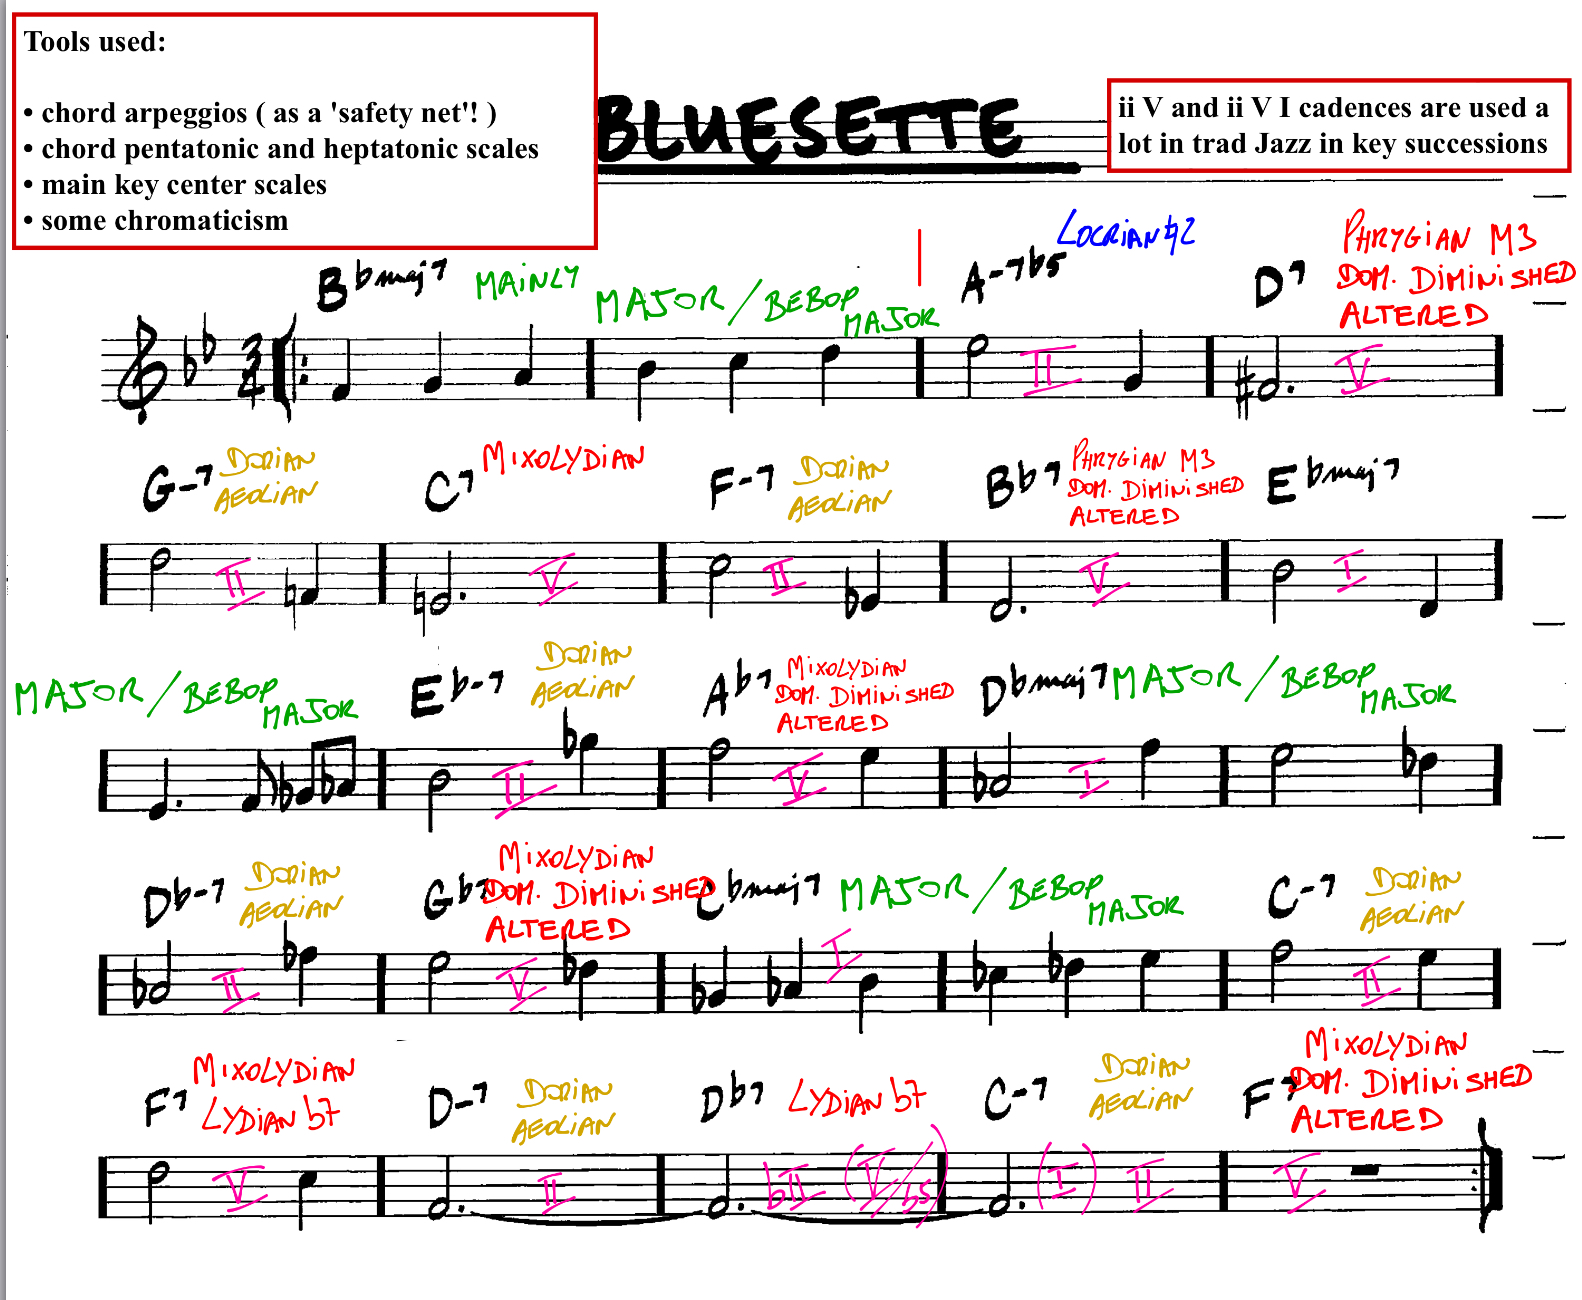 Tools used:
• chord arpeggios ( as a 'safety net'! )
• chord pentatonic and heptatonic scales
• main key center scales
• some chromaticism
BLUESETTE
ii V and ii V I cadences are used a
lot in trad Jazz in key successions
B♭maj7 MAINLY MAJOR / BEBOP MAJOR
A-7♭5 LOCRIAN♮2
D7 PHRYGIAN M3
DOM. DIMINISHED
ALTERED
3
4
II V
G-7 DORIAN
AEOLIAN
C7 MIXOLYDIAN
F-7 DORIAN
AEOLIAN
B♭7 PHRYGIAN M3
DOM. DIMINISHED
ALTERED
E♭maj7
II V II V I
MAJOR / BEBOP MAJOR
E♭-7 DORIAN
AEOLIAN
A♭7 MIXOLYDIAN
DOM. DIMINISHED
ALTERED
D♭maj7 MAJOR / BEBOP MAJOR
II V I
D♭-7 DORIAN
AEOLIAN
G♭7 MIXOLYDIAN
DOM. DIMINISHED
ALTERED
C♭maj7 MAJOR / BEBOP MAJOR
C-7 DORIAN
AEOLIAN
II V I II
F7 MIXOLYDIAN
LYDIAN b7
D-7 DORIAN
AEOLIAN
D♭7 LYDIAN b7
C-7 DORIAN
AEOLIAN
F7 MIXOLYDIAN
DOM. DIMINISHED
ALTERED
V II bII (V/b5) (I) II V